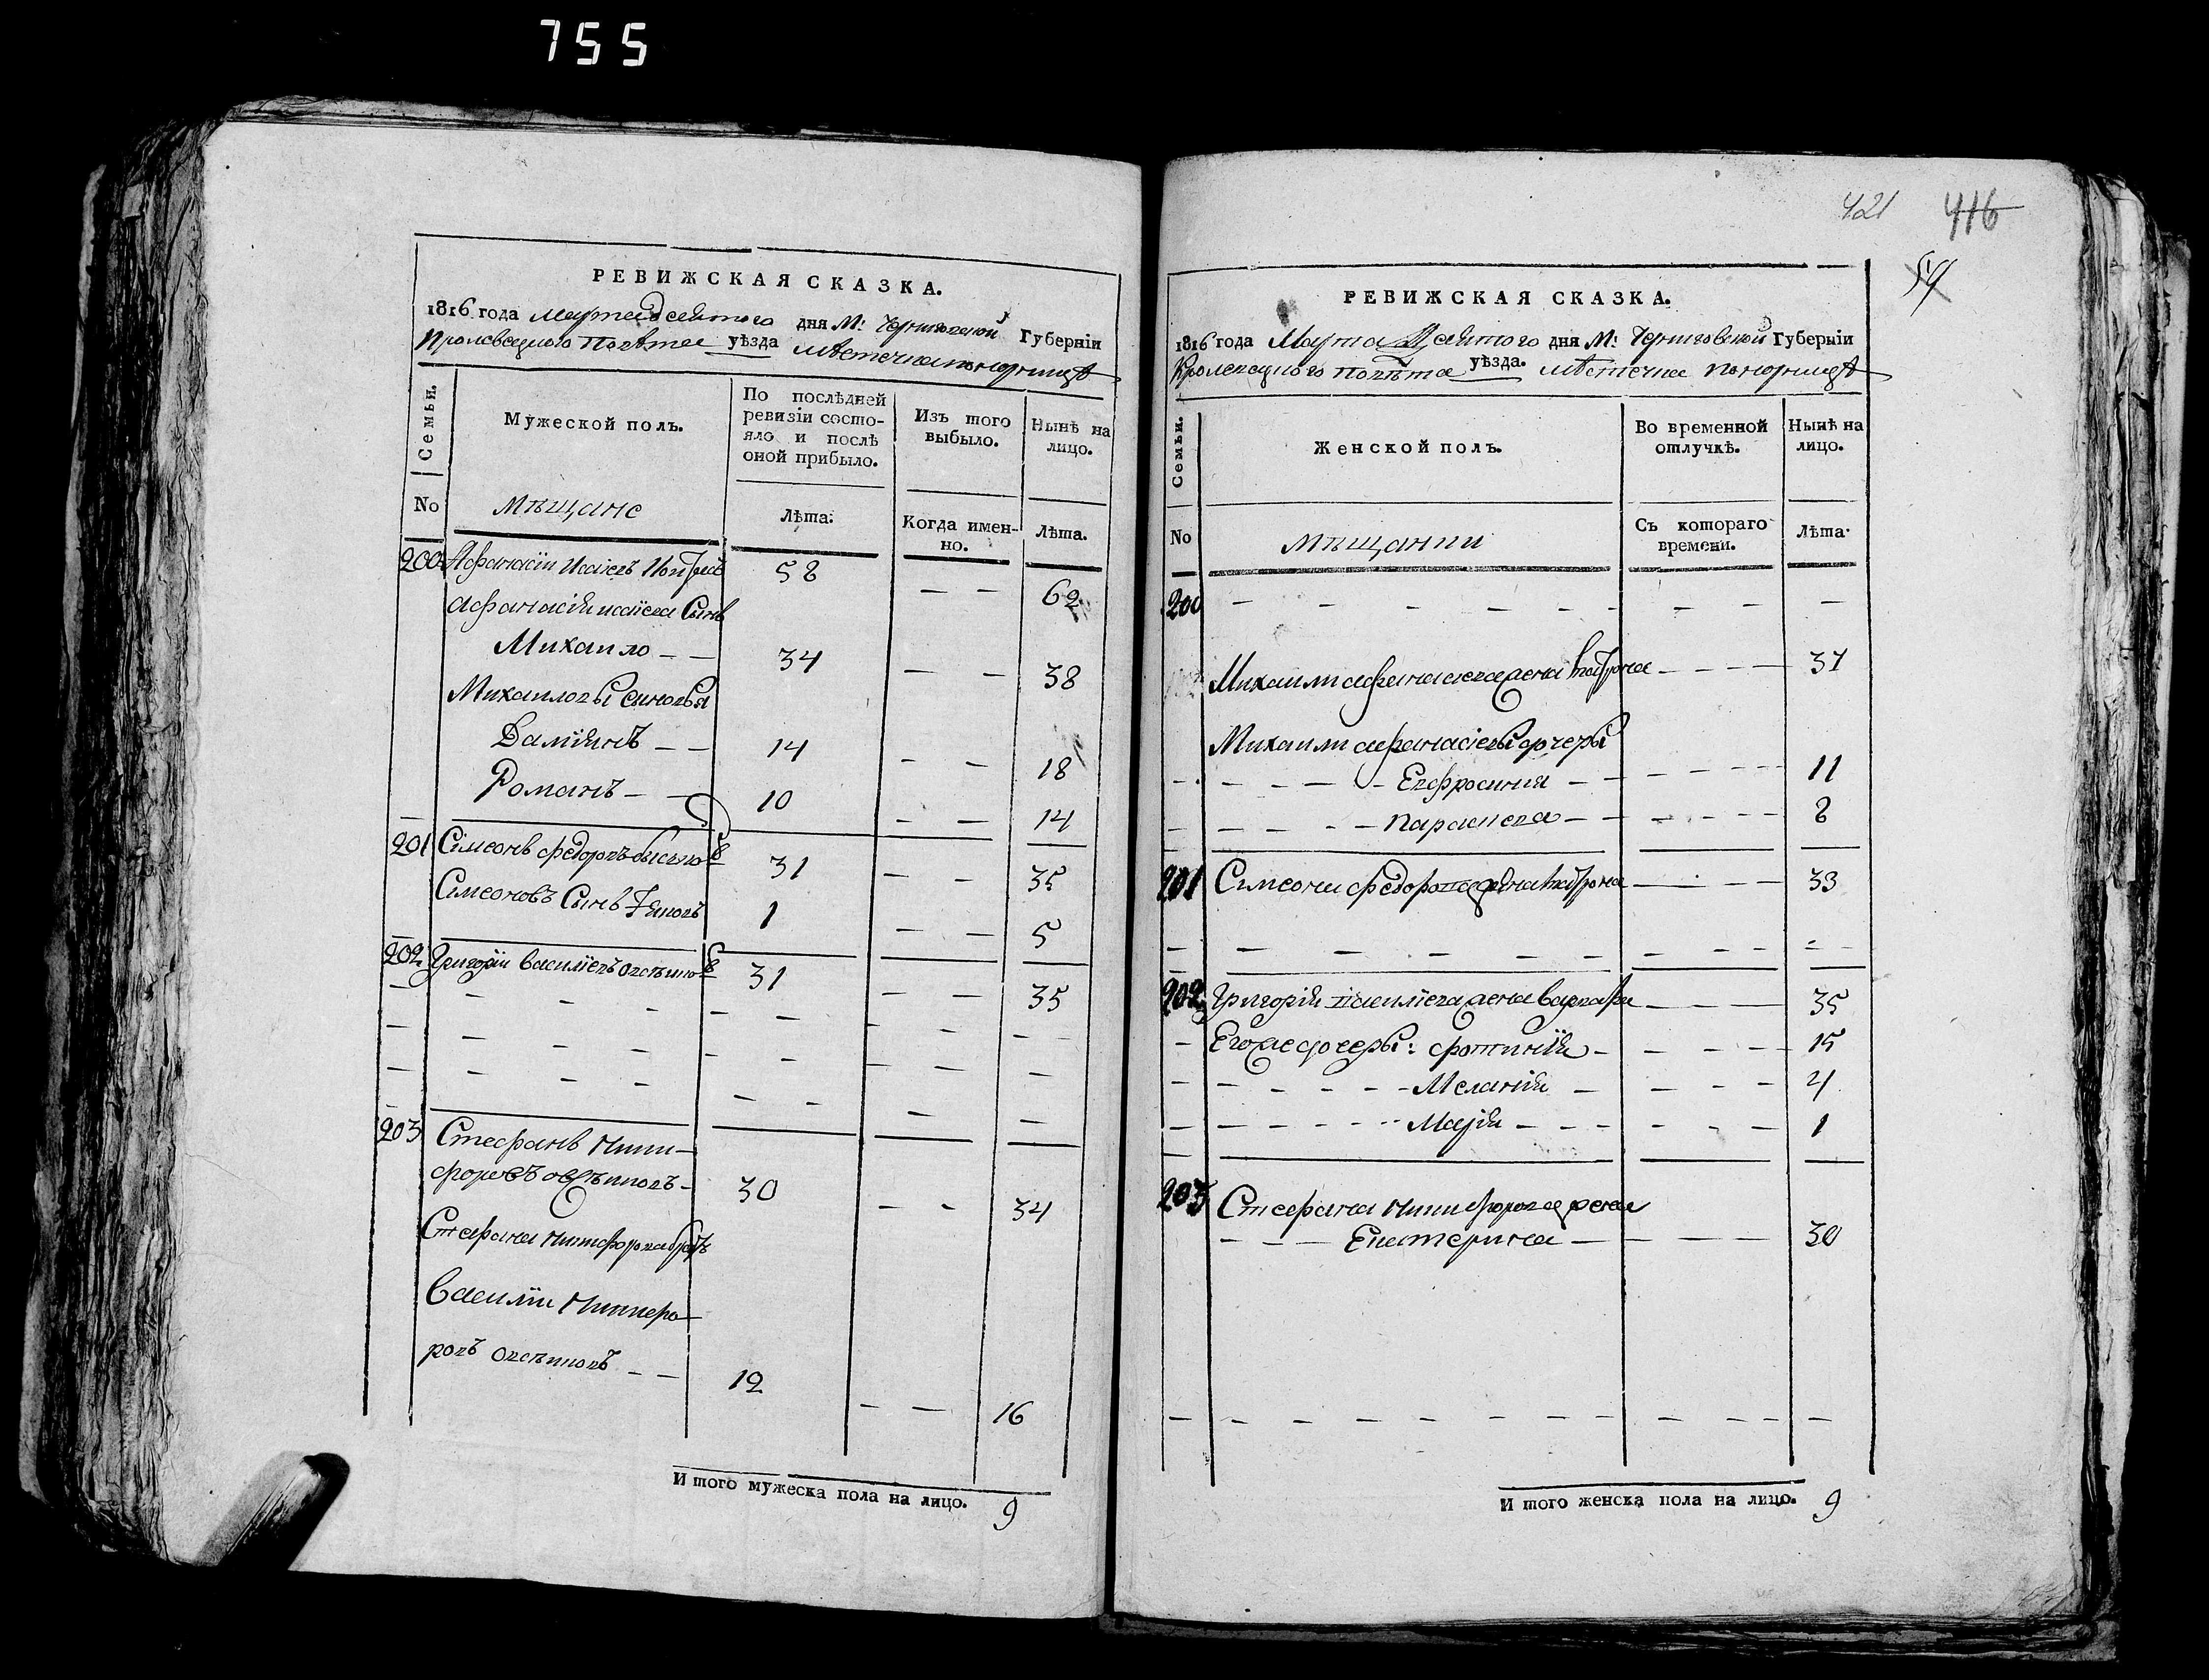 755
421 416
54
РЕВИЖСКАЯ СКАЗКА.
1816 года Марта Десятого дня М: Черниговской Губерніи
Кролевецкого Повѣта уѣзда мѣстечка понорницѣ
Семьи.
Мужеской полъ.
По послѣдней
ревизіи состо-
яло и послѣ
оной прибыло.
Изъ того
выбыло.
Нынѣ на
лицо.
No
мѣщане
Лѣта:
Когда имен-
но.
Лѣта.
200 Афанасіи Исаіевъ 58 — — 62
афанасія исаіева Сынъ
Михаило — — 34 — — 38
Михаиловы сыновья
Даміянъ — — 14 — — 18
Романъ — — 10 — — 14
201 Симеонъ федоровъ 31 — — 35
Симеоновъ Сынъ 1 — — 5
202 Григоріи Василіевъ овсѣико 31 — — 35
203 Стефанъ Ники-
форовъ овсѣиковъ — 30 — — 34
Стефана Никифорова братъ
Василіи Никифо-
ровъ овсѣиковъ — — 12 — — 16
И того мужеска пола на лицо. 9
РЕВИЖСКАЯ СКАЗКА.
1816 года Марта Десятого дня М: Черниговской Губерніи
Кролевецкого повѣта уѣзда. мѣстечка понорницѣ
Семьи.
Женской полъ.
Во временной
отлучкѣ.
Нынѣ на
лицо.
No
мѣщанки
Съ котораго
времени.
Лѣта.
200 — — — — — — — — —
Михаила афанасиева жена Матрона — — — — 37
Михаила афанасіевы дочеры
— — — — — Евфросиния — — — — — — 11
— — — — — — параскева — — — — — — 8
201 Симеона федорова жена Матрона — — — — 33
202 Григорія василіева жена варвара — — — 35
— Егоже дочеры: фотинія — — — — — 15
— — — — — — — Меланія — — — — 4
— — — — — — — Марія — — — — — — — 1
203 Стефана Никифорова жена
— — — Екатерина — — — — 30
И того женска пола на лицо. 9